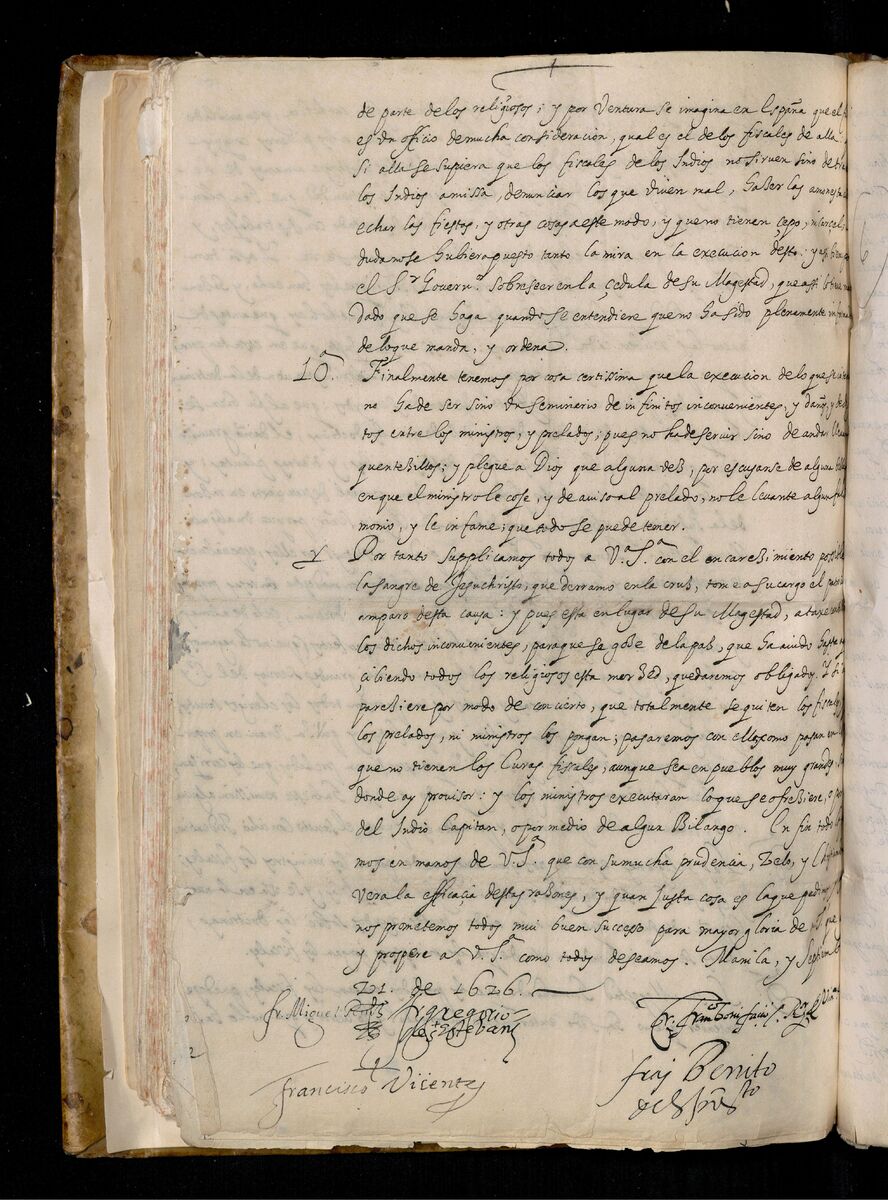 de parte de los religiosos; y por Ventura se imagina en España que el
es Vn officio de mucha consideracion, qual es el de los fiscales de alla
Si alla se supiera que los fiscales de los Indios no siruen sino de
los Indios a missa, denunciar los que viuen mal, haser las
echar las fiestas, y otras cosas a este modo, y que no tienen çepo, ni carçel,
duda no se hubiera puesto tanto la mira en la execucion desto: y assi
el S.r Govern.r sobreseer en la çedula de su Magestad, que assi
dado que se haga quando se entendiere que no ha sido plenamente
de lo que manda, y ordena.
10.a Finalmente tenemos por cosa certissima que la execucion de lo que se
no ha de ser sino Vn seminario de infinitos inconvenientes, y daños, y
tos entre los ministros, y prelados; pues no ha de servir sino de andar
y plegue a Dios que alguna vez, por escusarse de alguna
en que el ministro le cose, y de aviso al prelado, no le leuante algun
monio, y le infame; que todo se puede temer.
Por tanto supplicamos todos a V.a S.a con el encarezimiento
la sangre de Jesuchristo, que derramo en la cruz, tome a su cargo el
amparo desta causa: y pues esta en lugar de su Magestad,
los dichos inconvenientes, para que se goze de la paz, que ha auido hasta
çibiendo todos los religiosos esta merzed, quedaremos obligados. Y si
pareziere por modo de concierto, que totalmente se quiten los
los prelados, ni ministros los pongan; pasaremos con ello como pasan en
que no tienen los Curas fiscales, aunque sea en pueblos muy grandes,
donde ay provisor: y los ministros executaran lo que se ofreziere,
del Indio Capitan, o por medio de algun Bilango. En fin todo
mos en manos de V.S.a que con su mucha prudencia, Zelo, y
Vera la efficacia destas razones, y quan justa cosa es la que pedimos,
nos prometemos todos mui buen successo para mayor gloria de que
y prospere a V.S.a como todos deseamos. Manila, y
21. de 1626.
fr. Miguel fr gregorio
de s.t estevan
fray Benito
Francisco Vicente